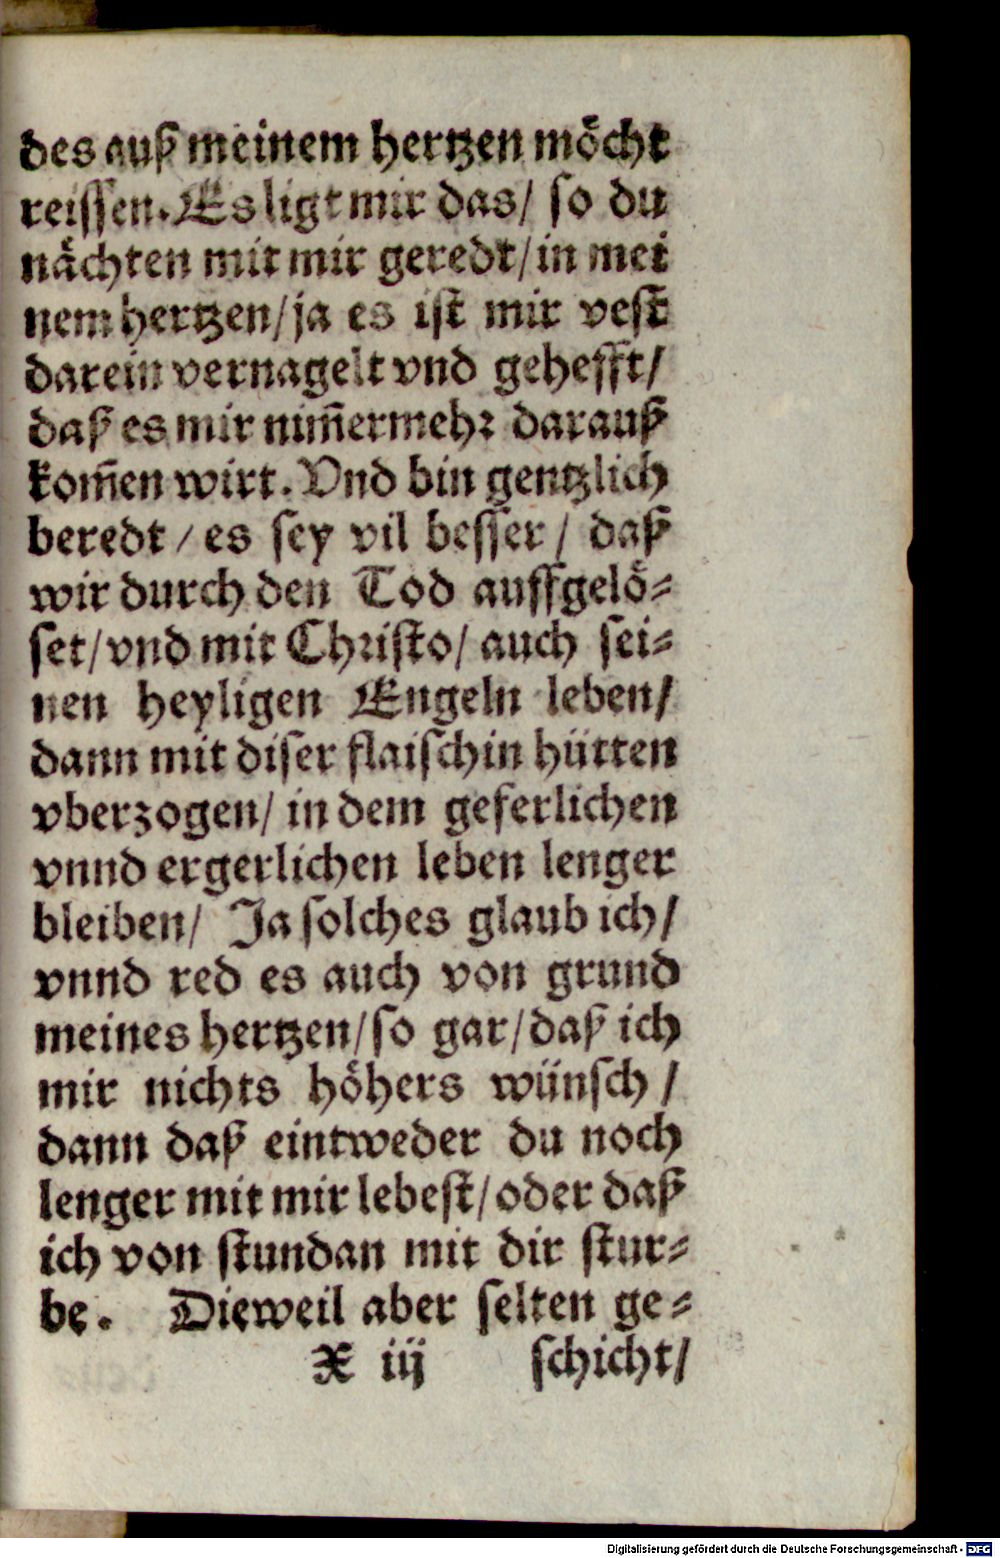 des auß meinem hertzen möcht
reissen. Es ligt mir das/ so du
nächten mit mir geredt/ in mei
nem hertzen/ ja es ist mir vest
darein vernagelt vnd gehefft/
daß es mir nim̃ermehr darauß
kom̃en wirt. Vnd bin gentzlich
beredt / es sey vil besser / daß
wir durch den Tod auffgelö⸗
set/ vnd mit Christo/ auch sei⸗
nen heyligen Engeln leben/
dann mit diser flaischin hütten
vberzogen/ in dem geferlichen
vnnd ergerlichen leben lenger
bleiben/ Ja solches glaub ich/
vnnd red es auch von grund
meines hertzen/ so gar/ daß ich
mir nichts höhers wünsch /
dann daß eintweder du noch
lenger mit mir lebest/ oder daß
ich von stundan mit dir stur⸗
be. Dieweil aber selten ge⸗
X iij schicht/
Digitalisierung gefördert durch die Deutsche Forschungsgemeinschaft - DFG